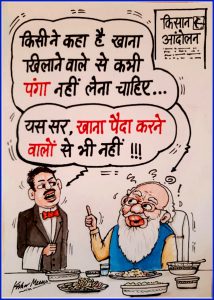 किसान
आंदोलन
किसी ने कहा है खाना
खिलाने वाले से कभी
पंगा नहीं लेना चाहिए...
यस सर, खाना पैदा करने
वालों से भी नहीं !!!